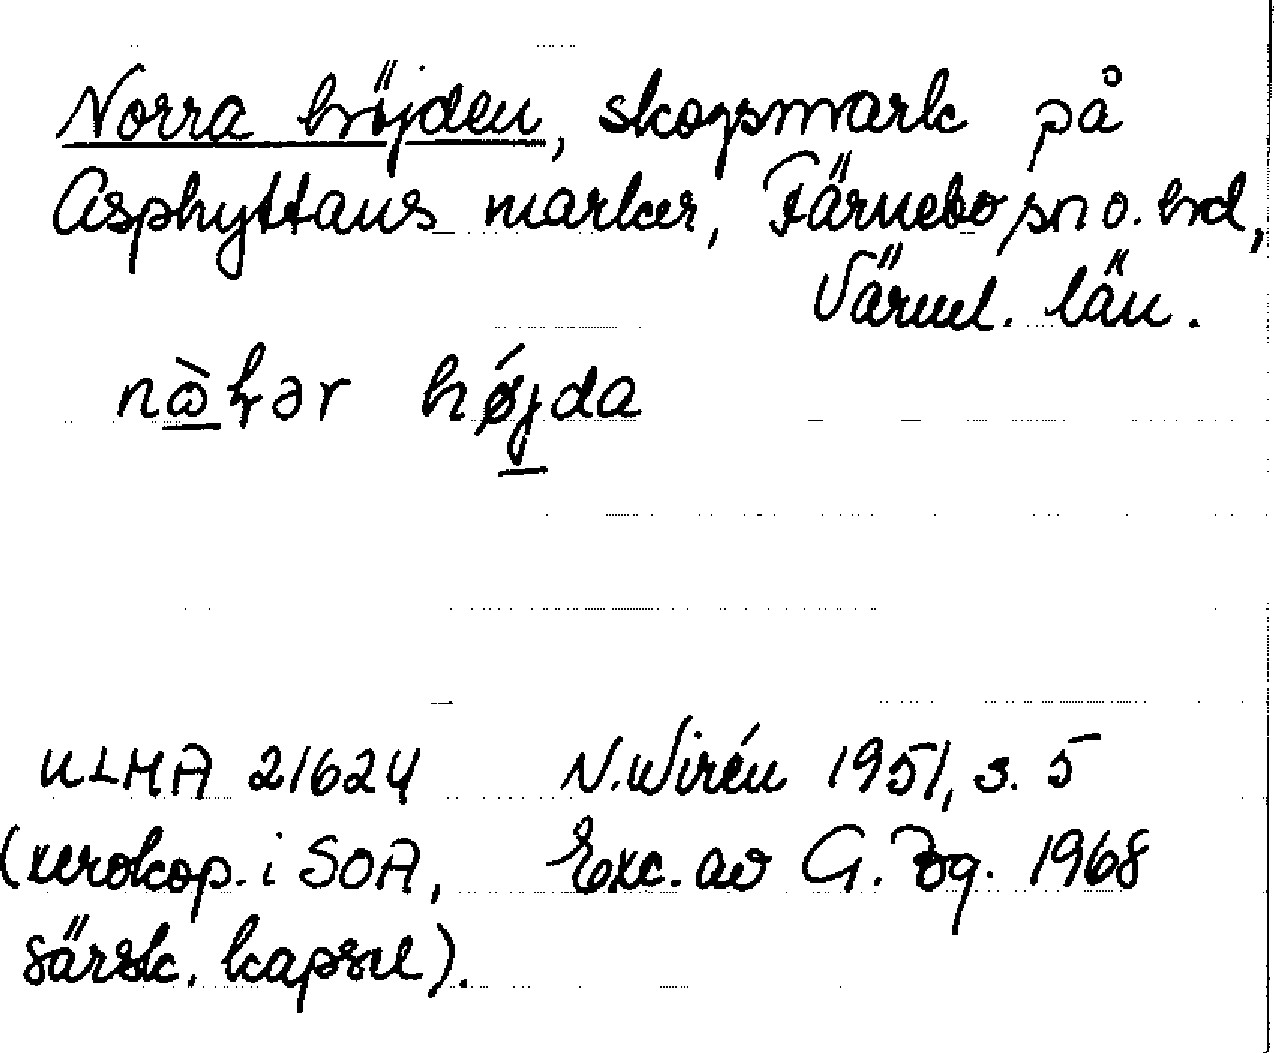 Norra höjden, skogsmark på
Asphyttans marker, Färnebo sn o. hd,
Värml. län.
höjda
ULMA 21624 N. Wirén 1951, s. 5
(xerokop. i SOA, Exc. av G. Bg. 1968
särsk. kapsel).